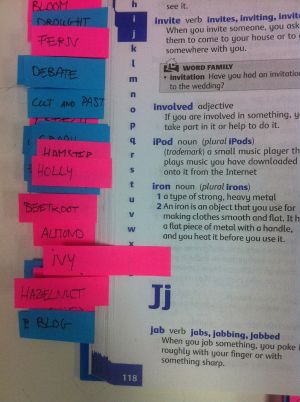 BLOOM
DROUGHT
FERN
DEBATE
CUT AND PAST
HAMSTER
HOLLY
BEETROOT
ALMOND
IVY
HAZELNUT
BLOG
h
i
j
k
l
m
n
o
p
q
r
s
t
u
v
w
x
see it.
invite verb invites, inviting, invit
When you invite someone, you ask
them to come to your house or to g
somewhere with you.
WORD FAMILY
• invitation Have you had an invitatio
to the wedding?
involved adjective
If you are involved in something, y
take part in it or help to do it.
iPod noun (plural iPods)
(trademark) a small music player th
plays music you have downloaded
onto it from the Internet
iron noun (plural irons)
1 a type of strong, heavy metal
2 An iron is an object that you use for
making clothes smooth and flat. It h
a flat piece of metal with a handle,
and you heat it before you use it.
Jj
jab verb jabs, jabbing, jabbed
When you jab something, you poke i
roughly with your finger or with
something sharp.
118